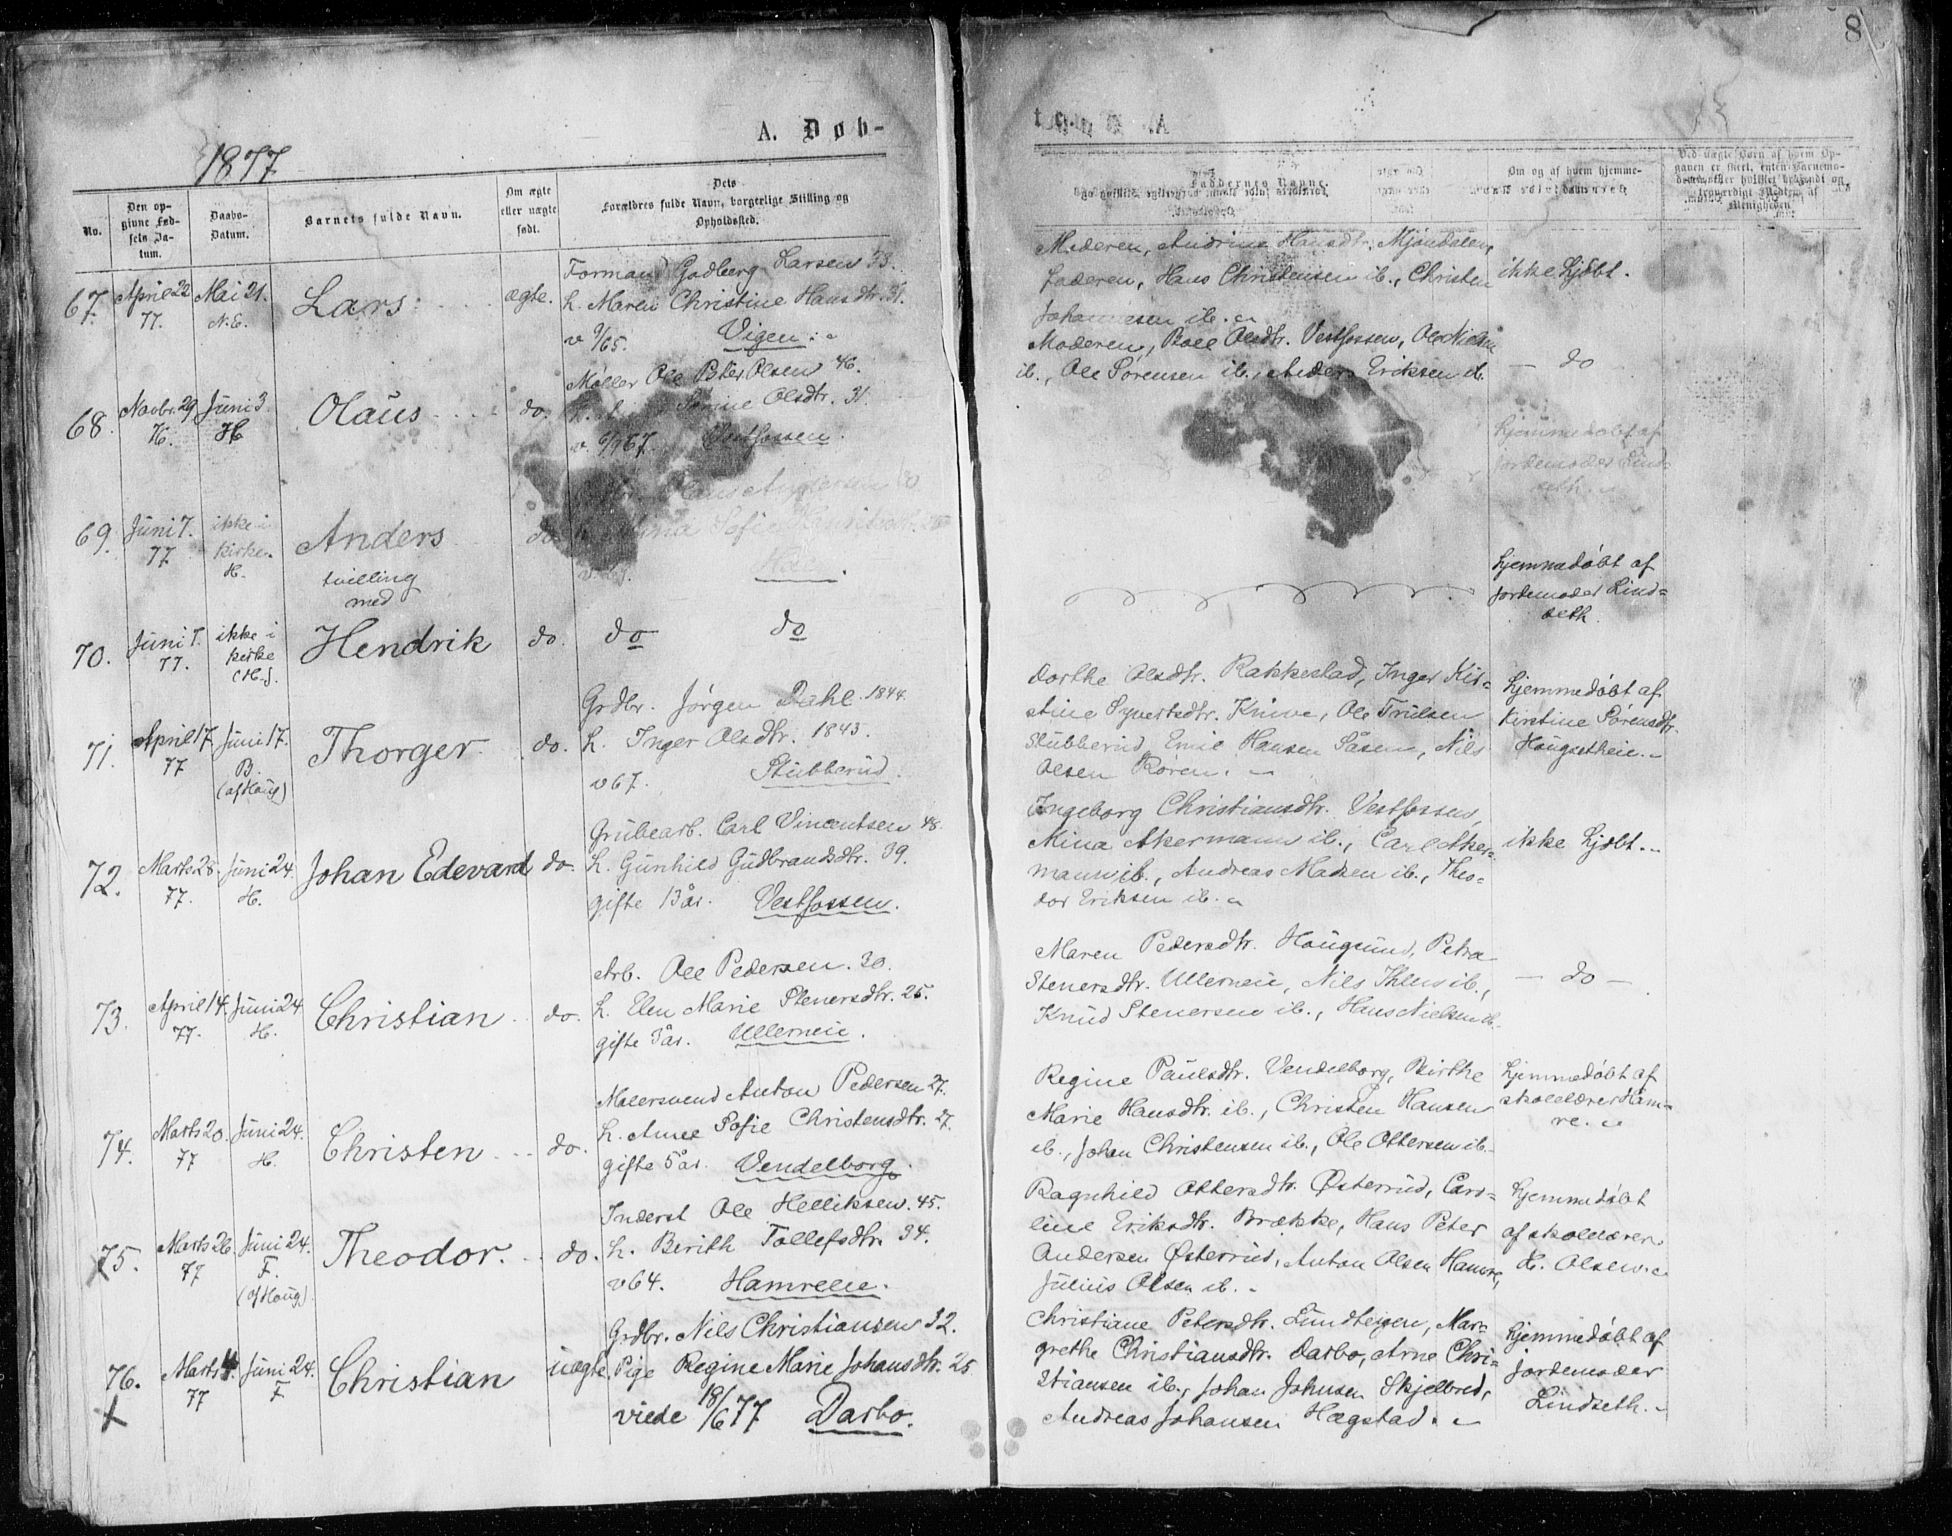 8
A. Døb-
1877
No.
Den opgivne Fødsels Datum.
Daabs-Datum.
Barnets fulde Navn.
Om ægte eller uægte født.
Dets Forældres fulde Navn, borgerlige Stilling og Opholdssted.
Faddernes Navne.
Om og af hvem hjemme-
67. April 22 77. Mai 21. N.E. Lars ægte.
Formand Gudberg Larsen 33.
h. Maren Christine Hansdtr. 31.
v 9/65. Vigen.
Moderen, Andrine Hansdtr. Mjøndalen,
Faderen, Hans Christensen ib., Christen
Johannesen ib.
ikke hjdbt.
68. Novbr. 29 76. Juni 3. H. Olaus do.
Møller Ole Peter Olsen 46.
Olsdtr. 31.
v. 67. Vestfossen.
Moderen, Boel Olsdtr. Vestfossen, Ole Nielsen
ib., Ole Sørensen ib., Anders Eriksen ib.
— do
69. Juni 7. 77 ikke i kirke. H. Anders do
tvilling
med
Andersen
Sofie
hjemmedøbt af
jordemoder Lind-
seth.
70. Juni 7. 77. ikke i kirke (H.). Hendrik do. do do
hjemmedøbt af
jordemoder Lind=
seth.
71. April 17 77 Juni 17. B. (af Houg) Thorger do.
Grdbr. Jørgen Dahl 1844.
h. Inger Olsdtr. 1843.
v 67. Stubberud.
Dorthe Olsdtr. Rakkestad, Inger Kir=
stine Syvertsdtr. Knive, Ole Trulsen
Stubberud, Emil Hansen Aasen, Nils
Olsen Roren.
hjemmedøbt af
Kirstine Sørensdtr.
Hougsetheie.
72. Marts 28. 77. Juni 24. H. Johan Edevard do.
Grubearb. Carl Vincentsen 48.
h. Gunhild Gudbrandsdtr. 39.
gifte 13 år. Vestfossen.
Ingeborg Christiansdtr. Vestfossen,
Mina Akermann ib., Carl Aker-
mann ib., Andreas Madsen ib., Theo=
dor Eriksen ib.
ikke hjdbt.
73. April 14. 77. Juni 24 H. Christian do.
Arb. Ole Pedersen. 30.
h. Elen Marie Stenersdtr. 25.
gifte 3 år. Ullerneie.
Maren Pedersdtr. Hougsund, Petra
Stenersdtr. Ullerneie, Nils Thlens ib.,
Knud Stenersen ib., Hans Nielsen ib.
— do —
74. Marts 20. 77 Juni 24. H. Christen do.
Møllersvend Anton Pedersen 27.
h. Anne Sofie Christensdtr. 27.
gifte 5 år. Vendelborg.
Regine Paulsdtr. Vendelborg, Birthe
Marie Hansdtr. ib., Christen Hansen
ib., Johan Christensen ib., Ole Ottersen ib.
hjemmedøbt af
skolelærer Ham=
re.
75. Marts 26. 77 Juni 24. F. (af Houg). Theodor. do.
Inderst Ole Helliksen. 45.
h. Berith Tollefsdtr. 34.
v 64. Hamreeie.
Ragnhild Ottersdtr. Østerud, Caro=
line Eriksdtr. Brække, Hans Peter
Andersen Østerud, Anton Olsen Hamre,
Julius Olsen ib.
hjemmedøbt
af skolelærer
H. Olsen.
76. Marts 4. 77 Juni 24. F Christian uægte.
Grdbr. Nils Christiansen 32.
Pige Regine Marie Johansdtr. 25
viede 18/6 77 Darbo.
Christiane Petersdtr. Lundteigen, Mar=
grethe Christiansdtr. Darbo, Arne Chri=
stiansen ib., Johan Johnsen Skjelbred,
Andreas Johansen Hægstad.
hjemmedøbt af
jordemoder
Lindseth.